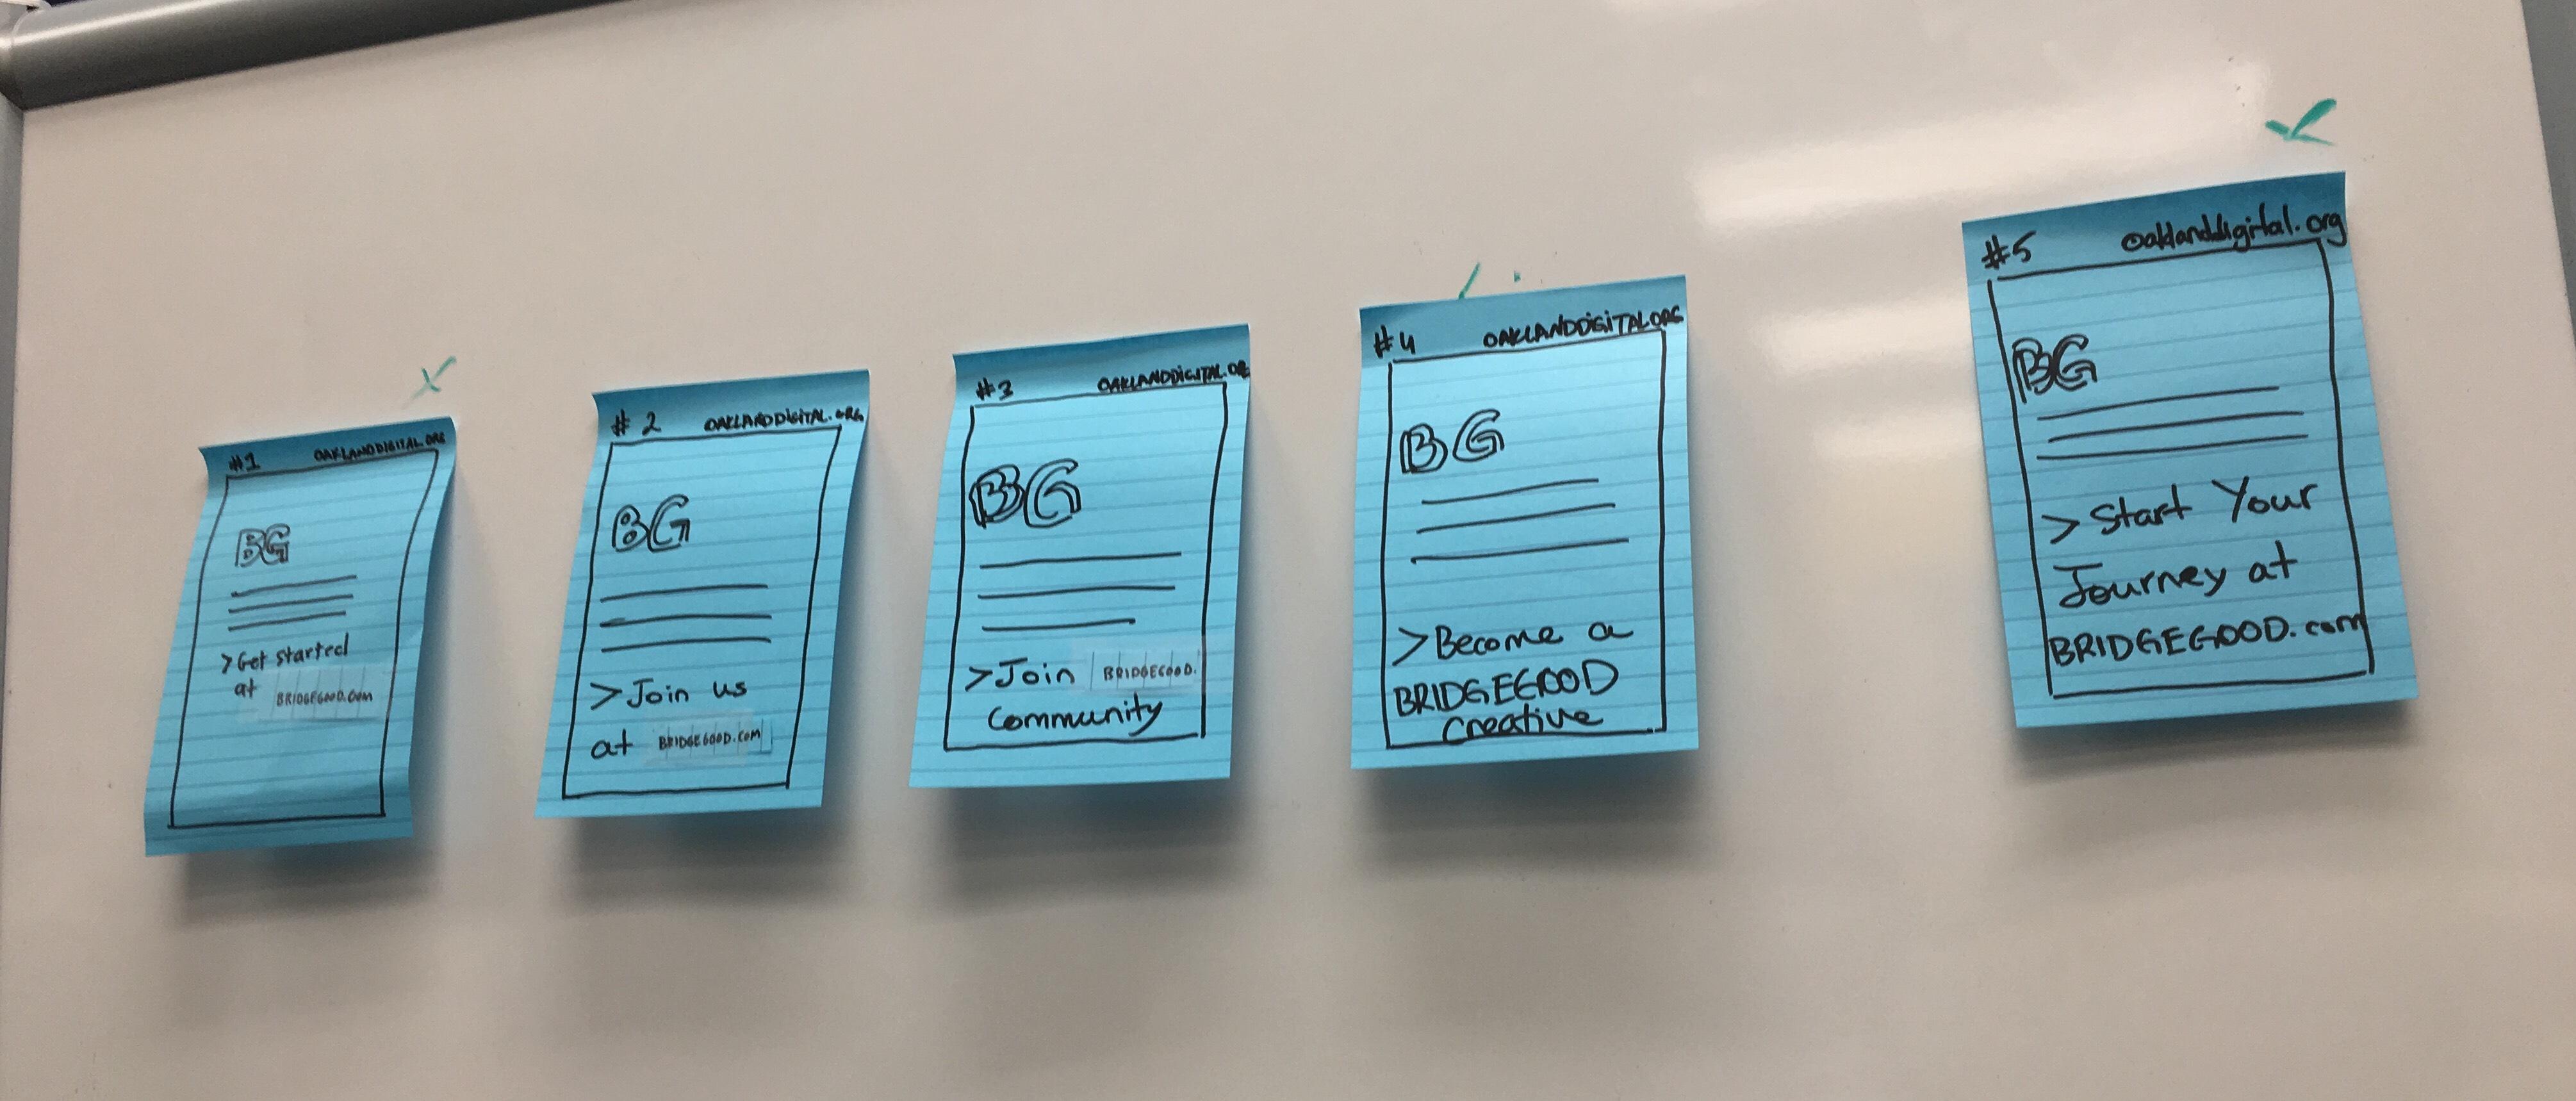 #1 OAKLANDDIGITAL.ORG
BG
>Get started
at BRIDGEGOOD.COM
# 2 OAKLANDDIGITAL.ORG
BG
>Join us
at BRIDGEGOOD.COM
#3 OAKLANDDIGITAL.OR
BG
>Join BRIDGEGOOD.
Community
#4 OAKLANDDIGITALORG
BG
>Become a
BRIDGEGOOD
Creative
#5 oaklanddigital.org
BG
>Start Your
Journey at
BRIDGEGOOD.com